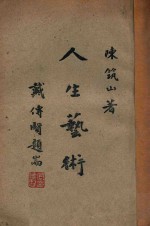 陳筑山著
人生藝術
戴傳賢題耑